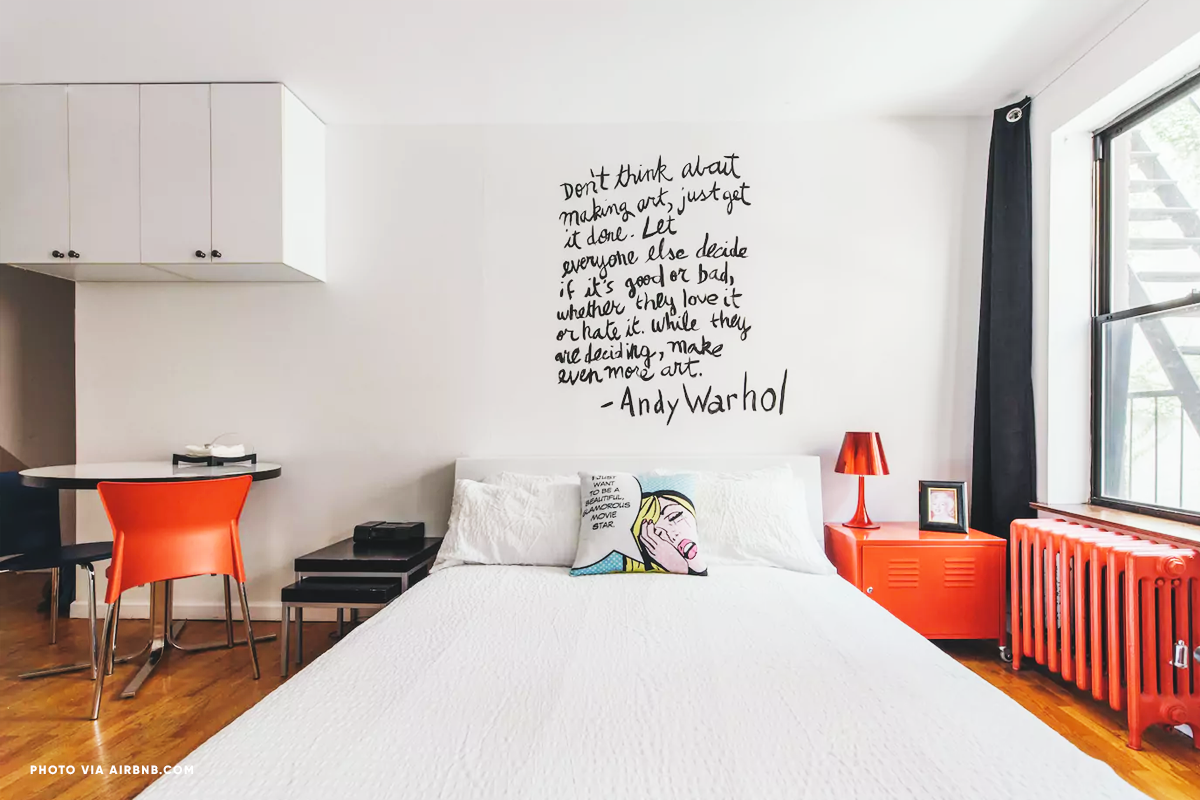 Don't think about
making art, just get
it done. Let
everyone else decide
if it's good or bad,
whether they love it
or hate it. While they
are deciding, make
even more art.
- Andy Warhol
I JUST
WANT
TO BE A
BEAUTIFUL,
GLAMOROUS
MOVIE
STAR.
PHOTO VIA AIRBNB.COM